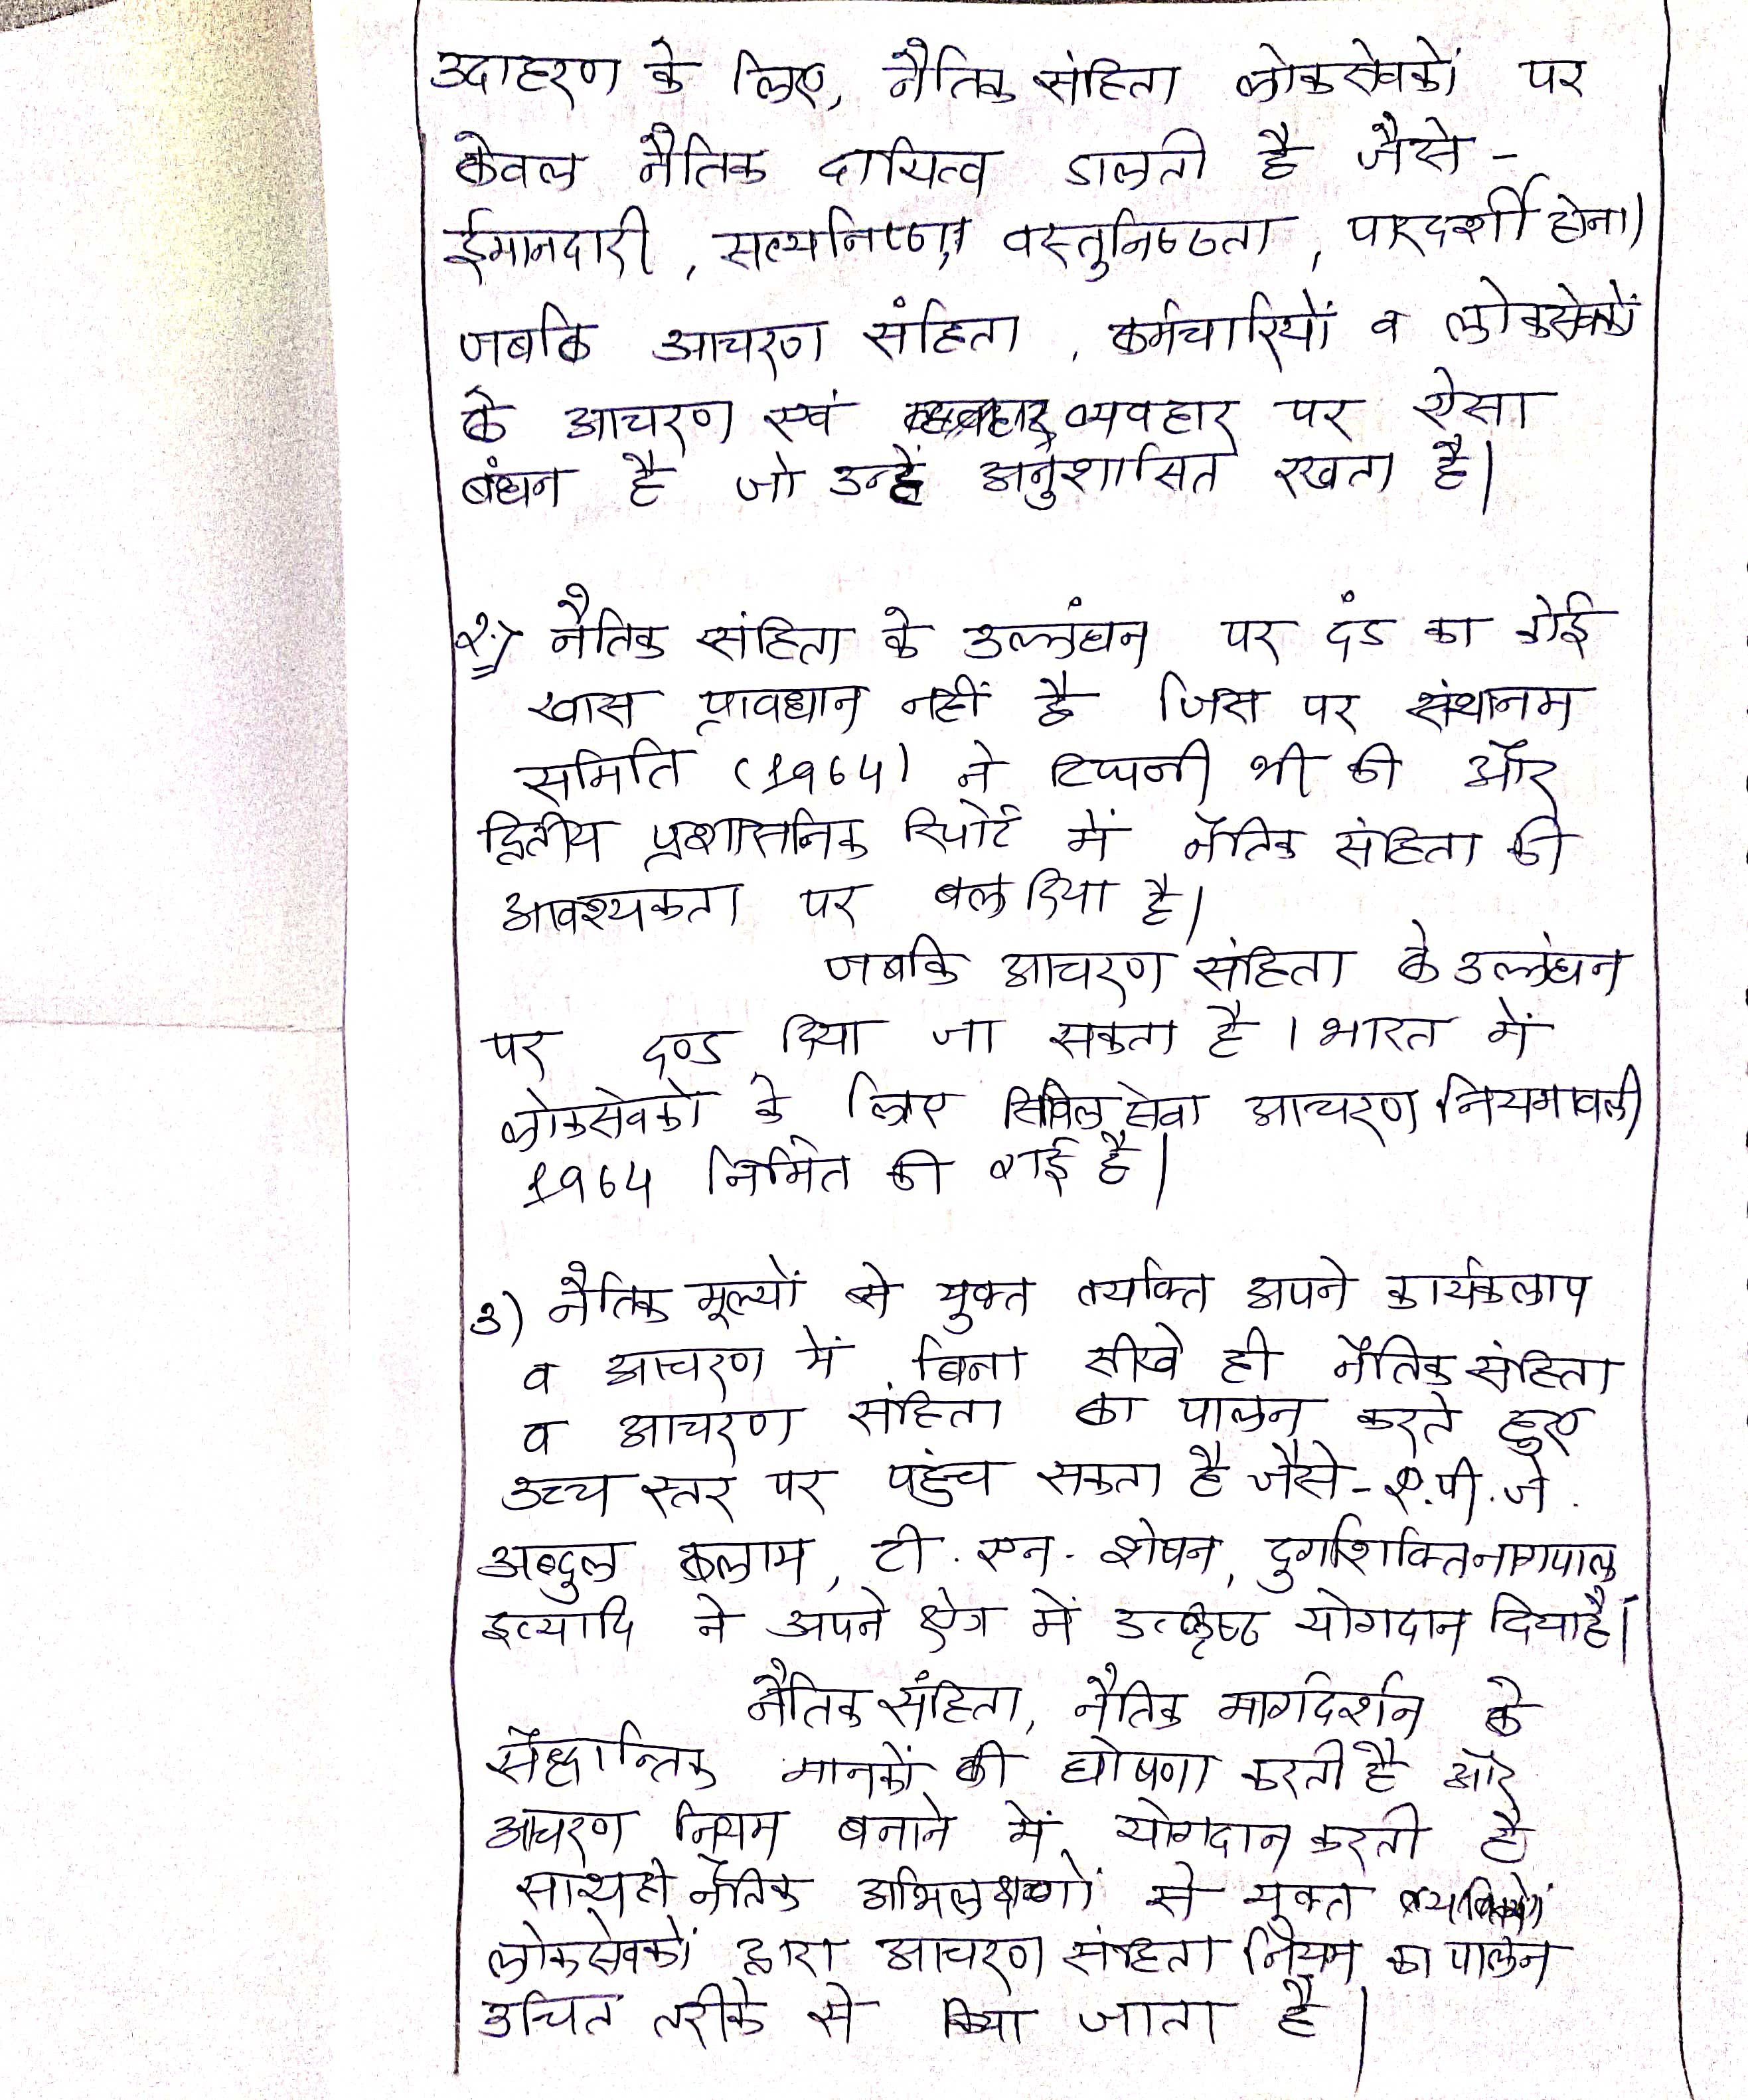 उदाहरण के लिए, नैतिक संहिता लोकसेवकों पर
केवल नैतिक दायित्व डालती है जैसे -
ईमानदारी, सत्यनिष्ठा, वस्तुनिष्ठता, पारदर्शी होना)
जबकि आचरण संहिता, कर्मचारियों व लोकसेवकों
के आचरण एवं व्यवहार पर ऐसा
बंधन है जो उन्हें अनुशासित रखता है।
2) नैतिक संहिता के उल्लंघन पर दंड का कोई
खास प्रावधान नहीं है जिस पर संथानम
समिति (1964) ने टिप्पनी भी की और
द्वितीय प्रशासनिक रिपोर्ट में नैतिक संहिता की
आवश्यकता पर बल दिया है।
जबकि आचरण संहिता के उल्लंघन
पर दण्ड दिया जा सकता है। भारत में
लोकसेवकों के लिए सिविल सेवा आचरण नियमावली
1964 निर्मित की गई है।
3) नैतिक मूल्यों से युक्त व्यक्ति अपने कार्यकलाप
व आचरण में बिना सीखे ही नैतिक संहिता
व आचरण संहिता का पालन करते हुए
उच्च स्तर पर पहुंच सकता है जैसे - ए.पी.जे.
अब्दुल कलाम, टी. एन. शेषन, दुर्गाशक्ति नागपाल
इत्यादि ने अपने क्षेत्र में उत्कृष्ट योगदान दिया है।
नैतिक संहिता, नैतिक मार्गदर्शन के
सैद्धान्तिक मानकों की घोषणा करती है और
आचरण नियम बनाने में योगदान करती है
साथ ही नैतिक अभिलक्षणों से युक्त
लोकसेवकों द्वारा आचरण संहिता नियम का पालन
उचित तरीके से किया जाता है।